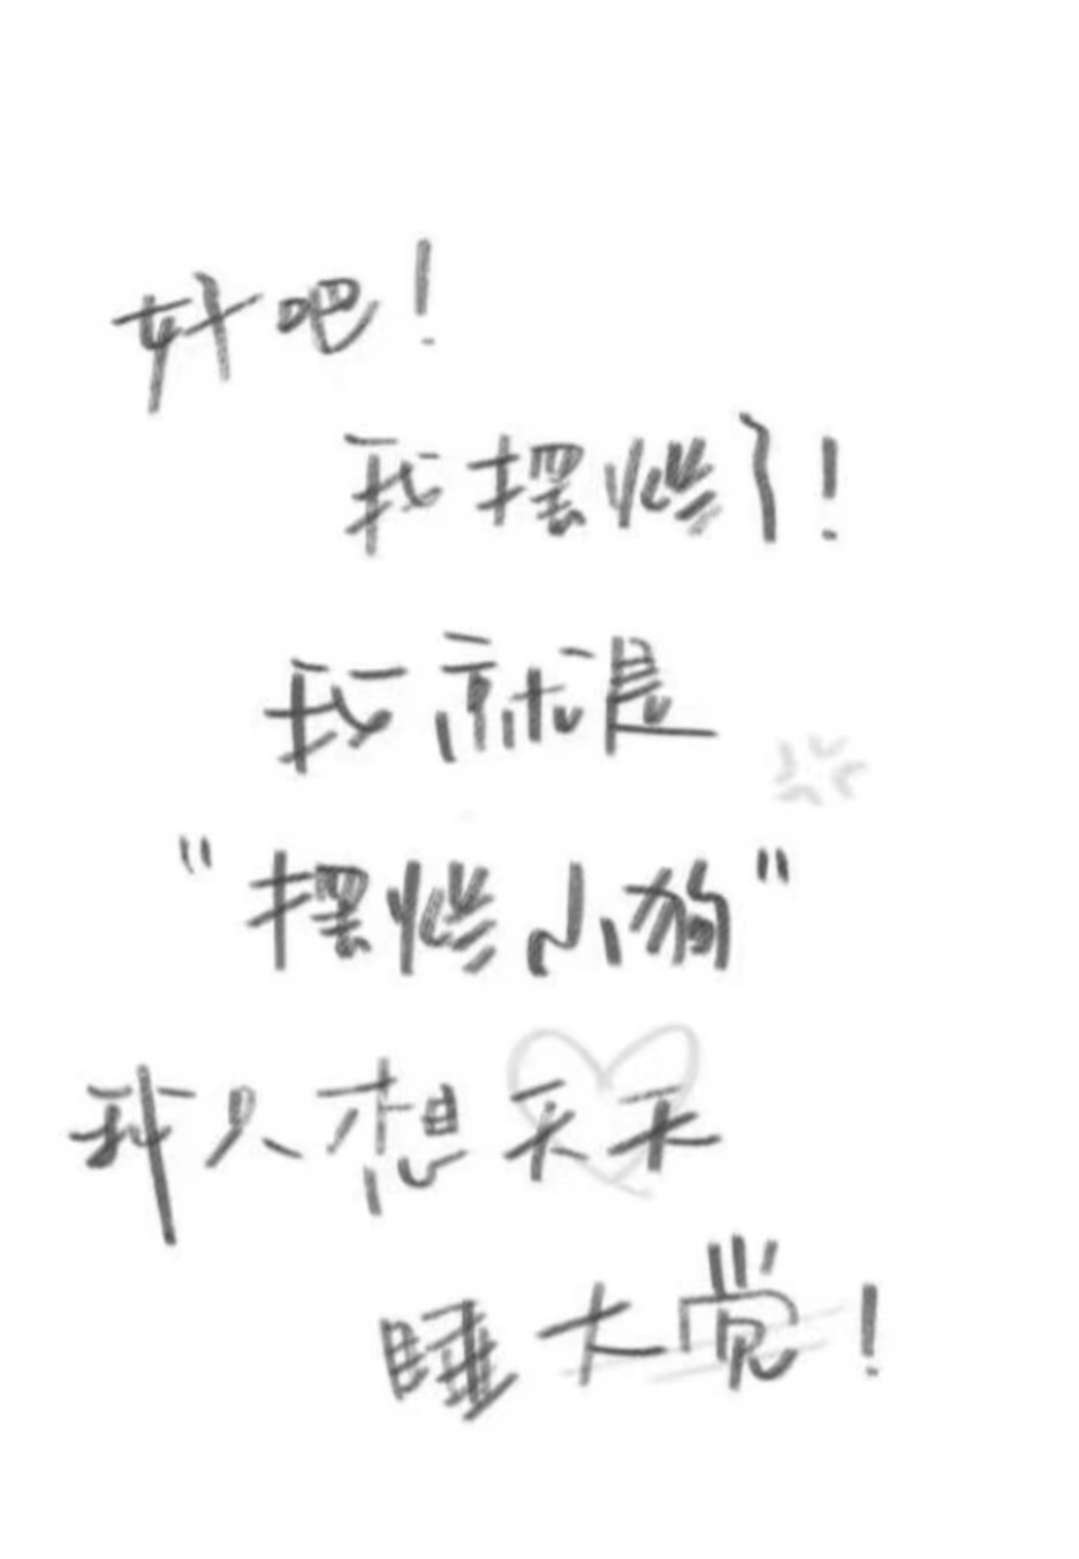 好吧！
我摆烂了！
我就是
“摆烂小狗”
我只想天天
睡大觉！